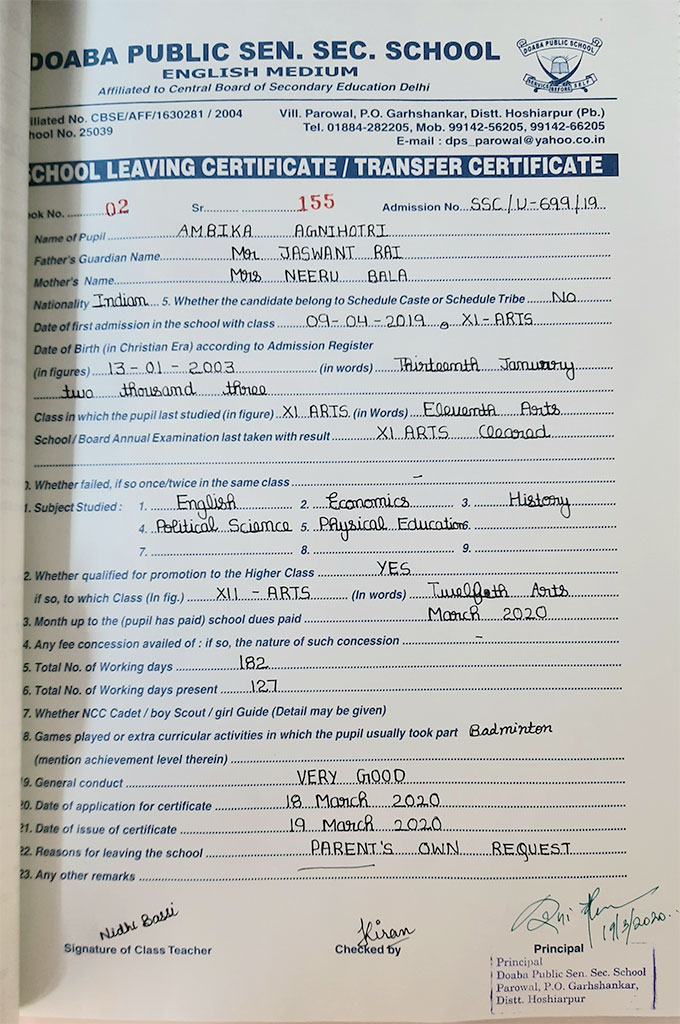 DOABA PUBLIC SEN. SEC. SCHOOL
ENGLISH MEDIUM
Affiliated to Central Board of Secondary Education Delhi
DOABA PUBLIC SCHOOL
SERVICE BEFORE SELF
iliated No. CBSE/AFF/1630281 / 2004 Vill. Parowal, P.O. Garhshankar, Distt. Hoshiarpur (Pb.)
hool No. 25039 Tel. 01884-282205, Mob. 99142-56205, 99142-66205
E-mail : dps_parowal@yahoo.co.in
SCHOOL LEAVING CERTIFICATE / TRANSFER CERTIFICATE
ok No. 02 Sr. 155 Admission No. SSC/U-699/19
Name of Pupil AMBIKA AGNIHOTRI
Father's Guardian Name Mr JASWANT RAI
Mother's Name Mrs NEERU BALA
Nationality Indian 5. Whether the candidate belong to Schedule Caste or Schedule Tribe No
Date of first admission in the school with class 09-04-2019 XI-ARTS
Date of Birth (in Christian Era) according to Admission Register
(in figures) 13-01-2003 (in words) Thirteenth Janurry
two thousand three
Class in which the pupil last studied (in figure) XI ARTS (in Words) Eleventh Arts
School / Board Annual Examination last taken with result XI ARTS Cleared
0. Whether failed, if so once/twice in the same class -
1. Subject Studied : 1. English 2. Economics 3. History
4. Political Science 5. Physical Education 6.
7. 8. 9.
2. Whether qualified for promotion to the Higher Class YES
if so, to which Class (In fig.) XII - ARTS (In Words) Twelfeth Arts
3. Month up to the (pupil has paid) school dues paid March 2020
4. Any fee concession availed of : if so, the nature of such concession -
5. Total No. of Working days 182
6. Total No. of Working days present 127
7. Whether NCC Cadet / boy Scout / girl Guide (Detail may be given)
8. Games played or extra curricular activities in which the pupil usually took part Badminton
(mention achievement level therein)
19. General conduct VERY GOOD
20. Date of application for certificate 18 March 2020
21. Date of issue of certificate 19 March 2020
22. Reasons for leaving the school PARENT'S OWN REQUEST
23. Any other remarks
Nidhi Bassi Kiran 19/3/2020
Signature of Class Teacher Checked by Principal
Principal
Doaba Public Sen. Sec. School
Parowal, P.O. Garhshankar,
Distt. Hoshiarpur